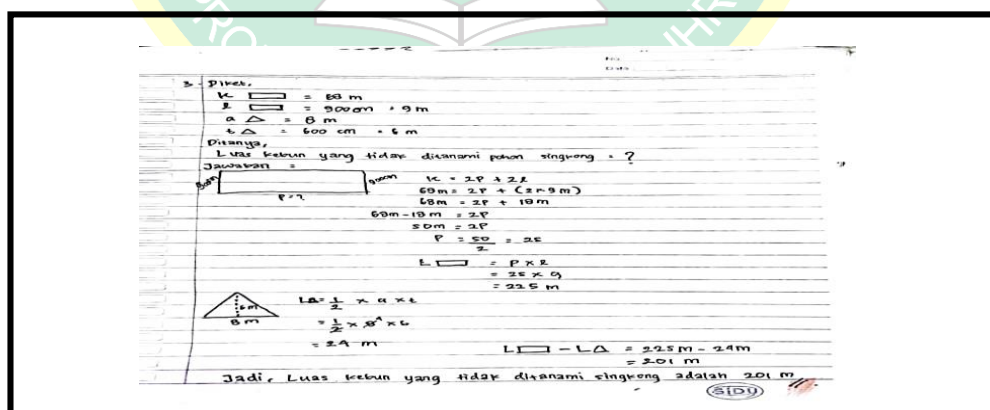 No.
Date
3. Diket,
K ▭ = 68 m
l ▭ = 900 cm = 9 m
a △ = 8 m
t △ = 600 cm = 6 m
Ditanya,
Luas kebun yang tidak ditanami pohon singkong = ?
Jawaban =
900cm 900cm K = 2P + 2l
P=? 68m = 2P + (2×9m)
68m = 2P + 18m
68m - 18m = 2P
50m = 2P
P = 50/2 = 25
L▭ = P × l
= 25 × 9
= 225 m
6m L△ = 1/2 × a × t
8 m = 1/2 × 8⁴ × 6
= 24 m L▭ - L△ = 225m - 24m
= 201 m
Jadi, Luas kebun yang tidak ditanami singkong adalah 201 m
SIDU